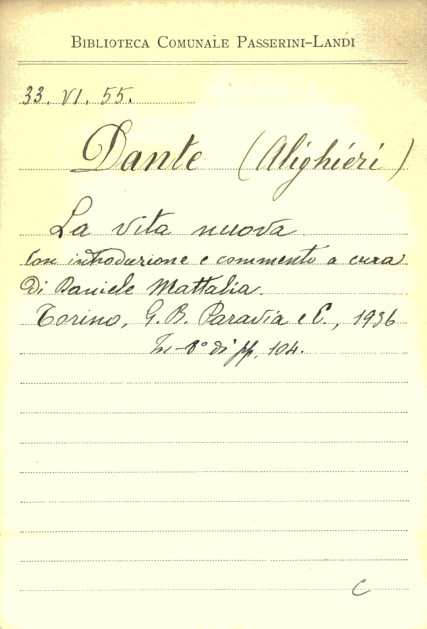 BIBLIOTECA COMUNALE PASSERINI-LANDI
33. VI. 55.
Dante (Alighieri)
La vita nuova
Con introduzione e commento a cura
Di Daniele Mattalia.
Torino, G. B. Paravia e C., 1936
In-8° di pp. 104.
C